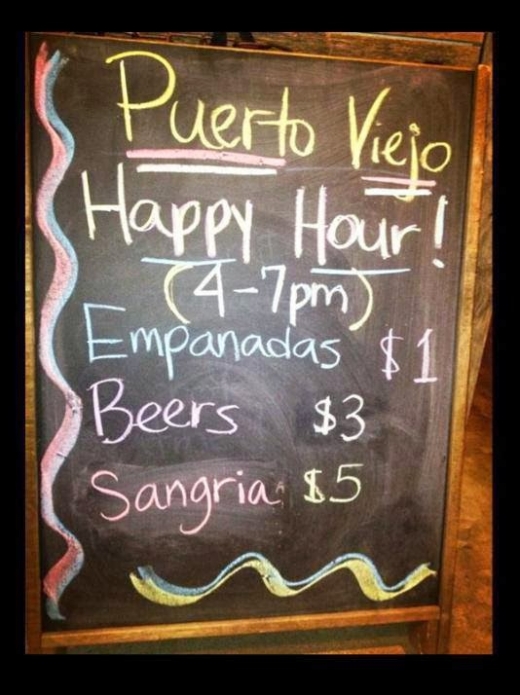 Puerto Viejo
Happy Hour!
(4-7pm)
Empanadas $1
Beers $3
Sangria $5